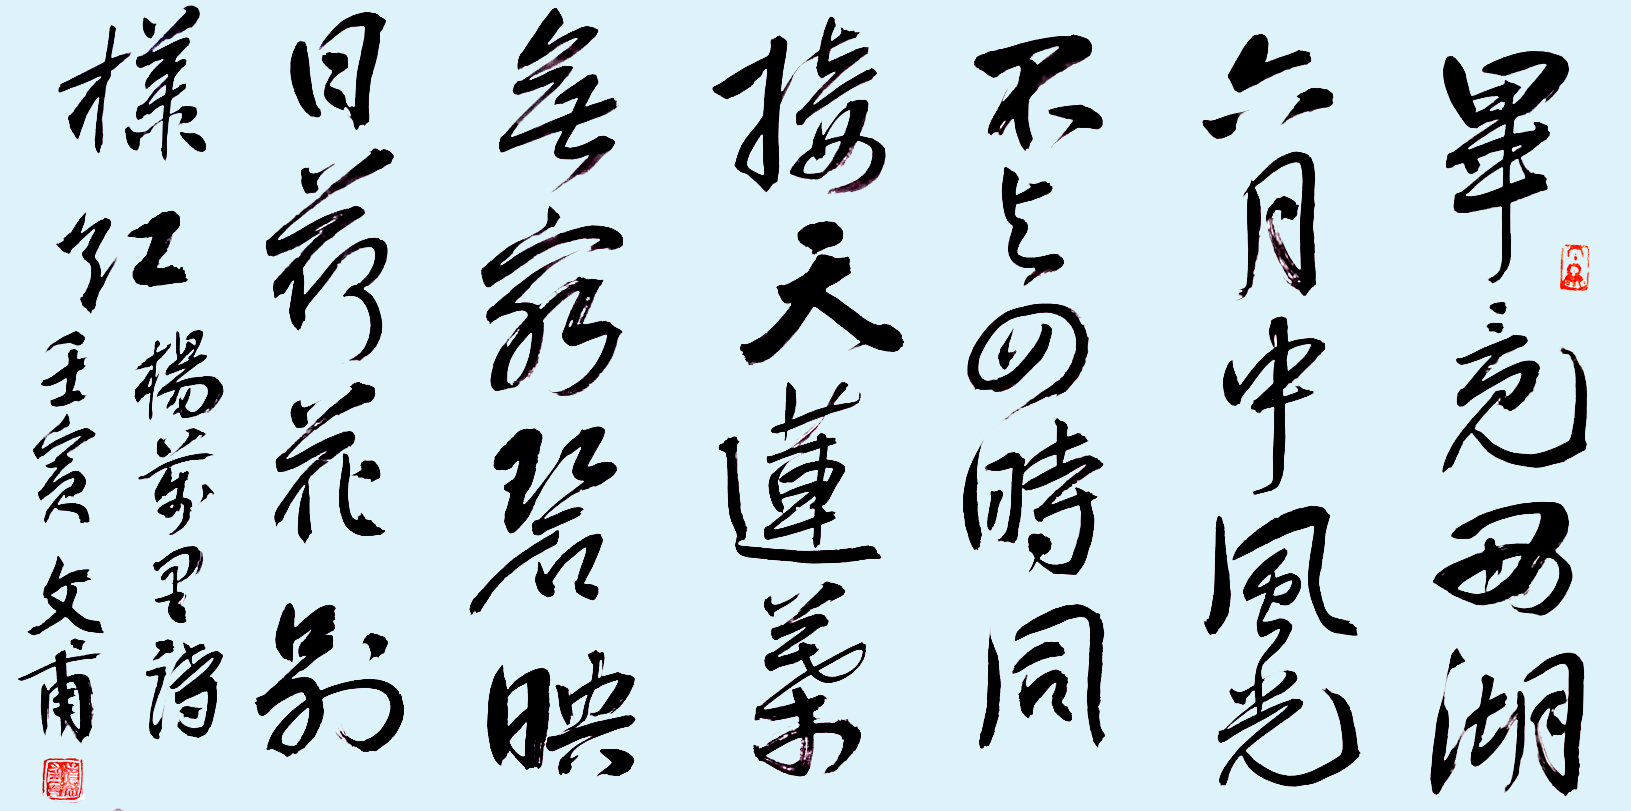 畢竟西湖
六月中風光
不与四時同
接天蓮葉
無窮碧映
日荷花別
樣紅
楊萬里詩
壬寅文甫